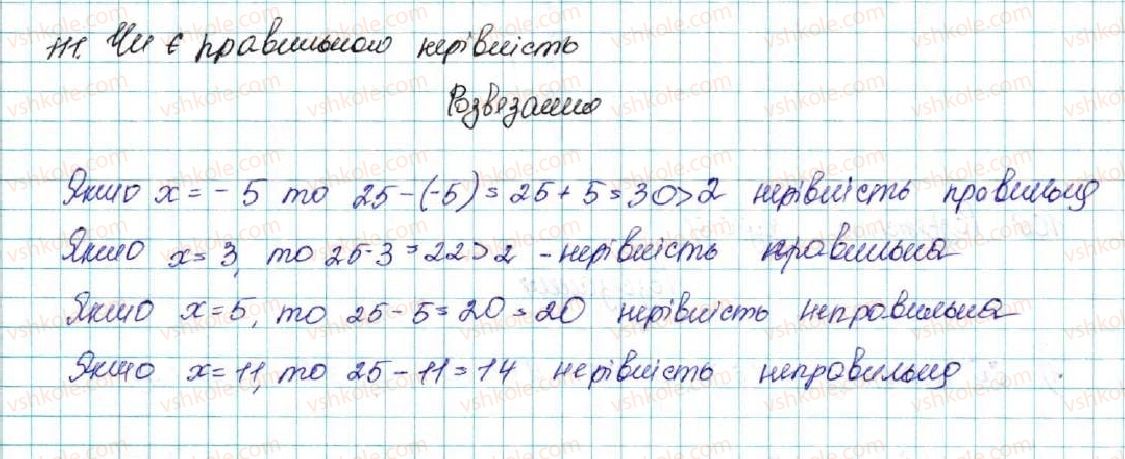 111. Чи є правильною нерівність
Розвязання
Якщо x = - 5 то 25 - (-5) = 25 + 5 = 30 > 2 нерівність правильна
Якщо x = 3, то 25 - 3 = 22 > 2 - нерівність правильна
Якщо x = 5, то 25 - 5 = 20 = 20 нерівність неправильна
Якщо x = 11, то 25 - 11 = 14 нерівність неправильна